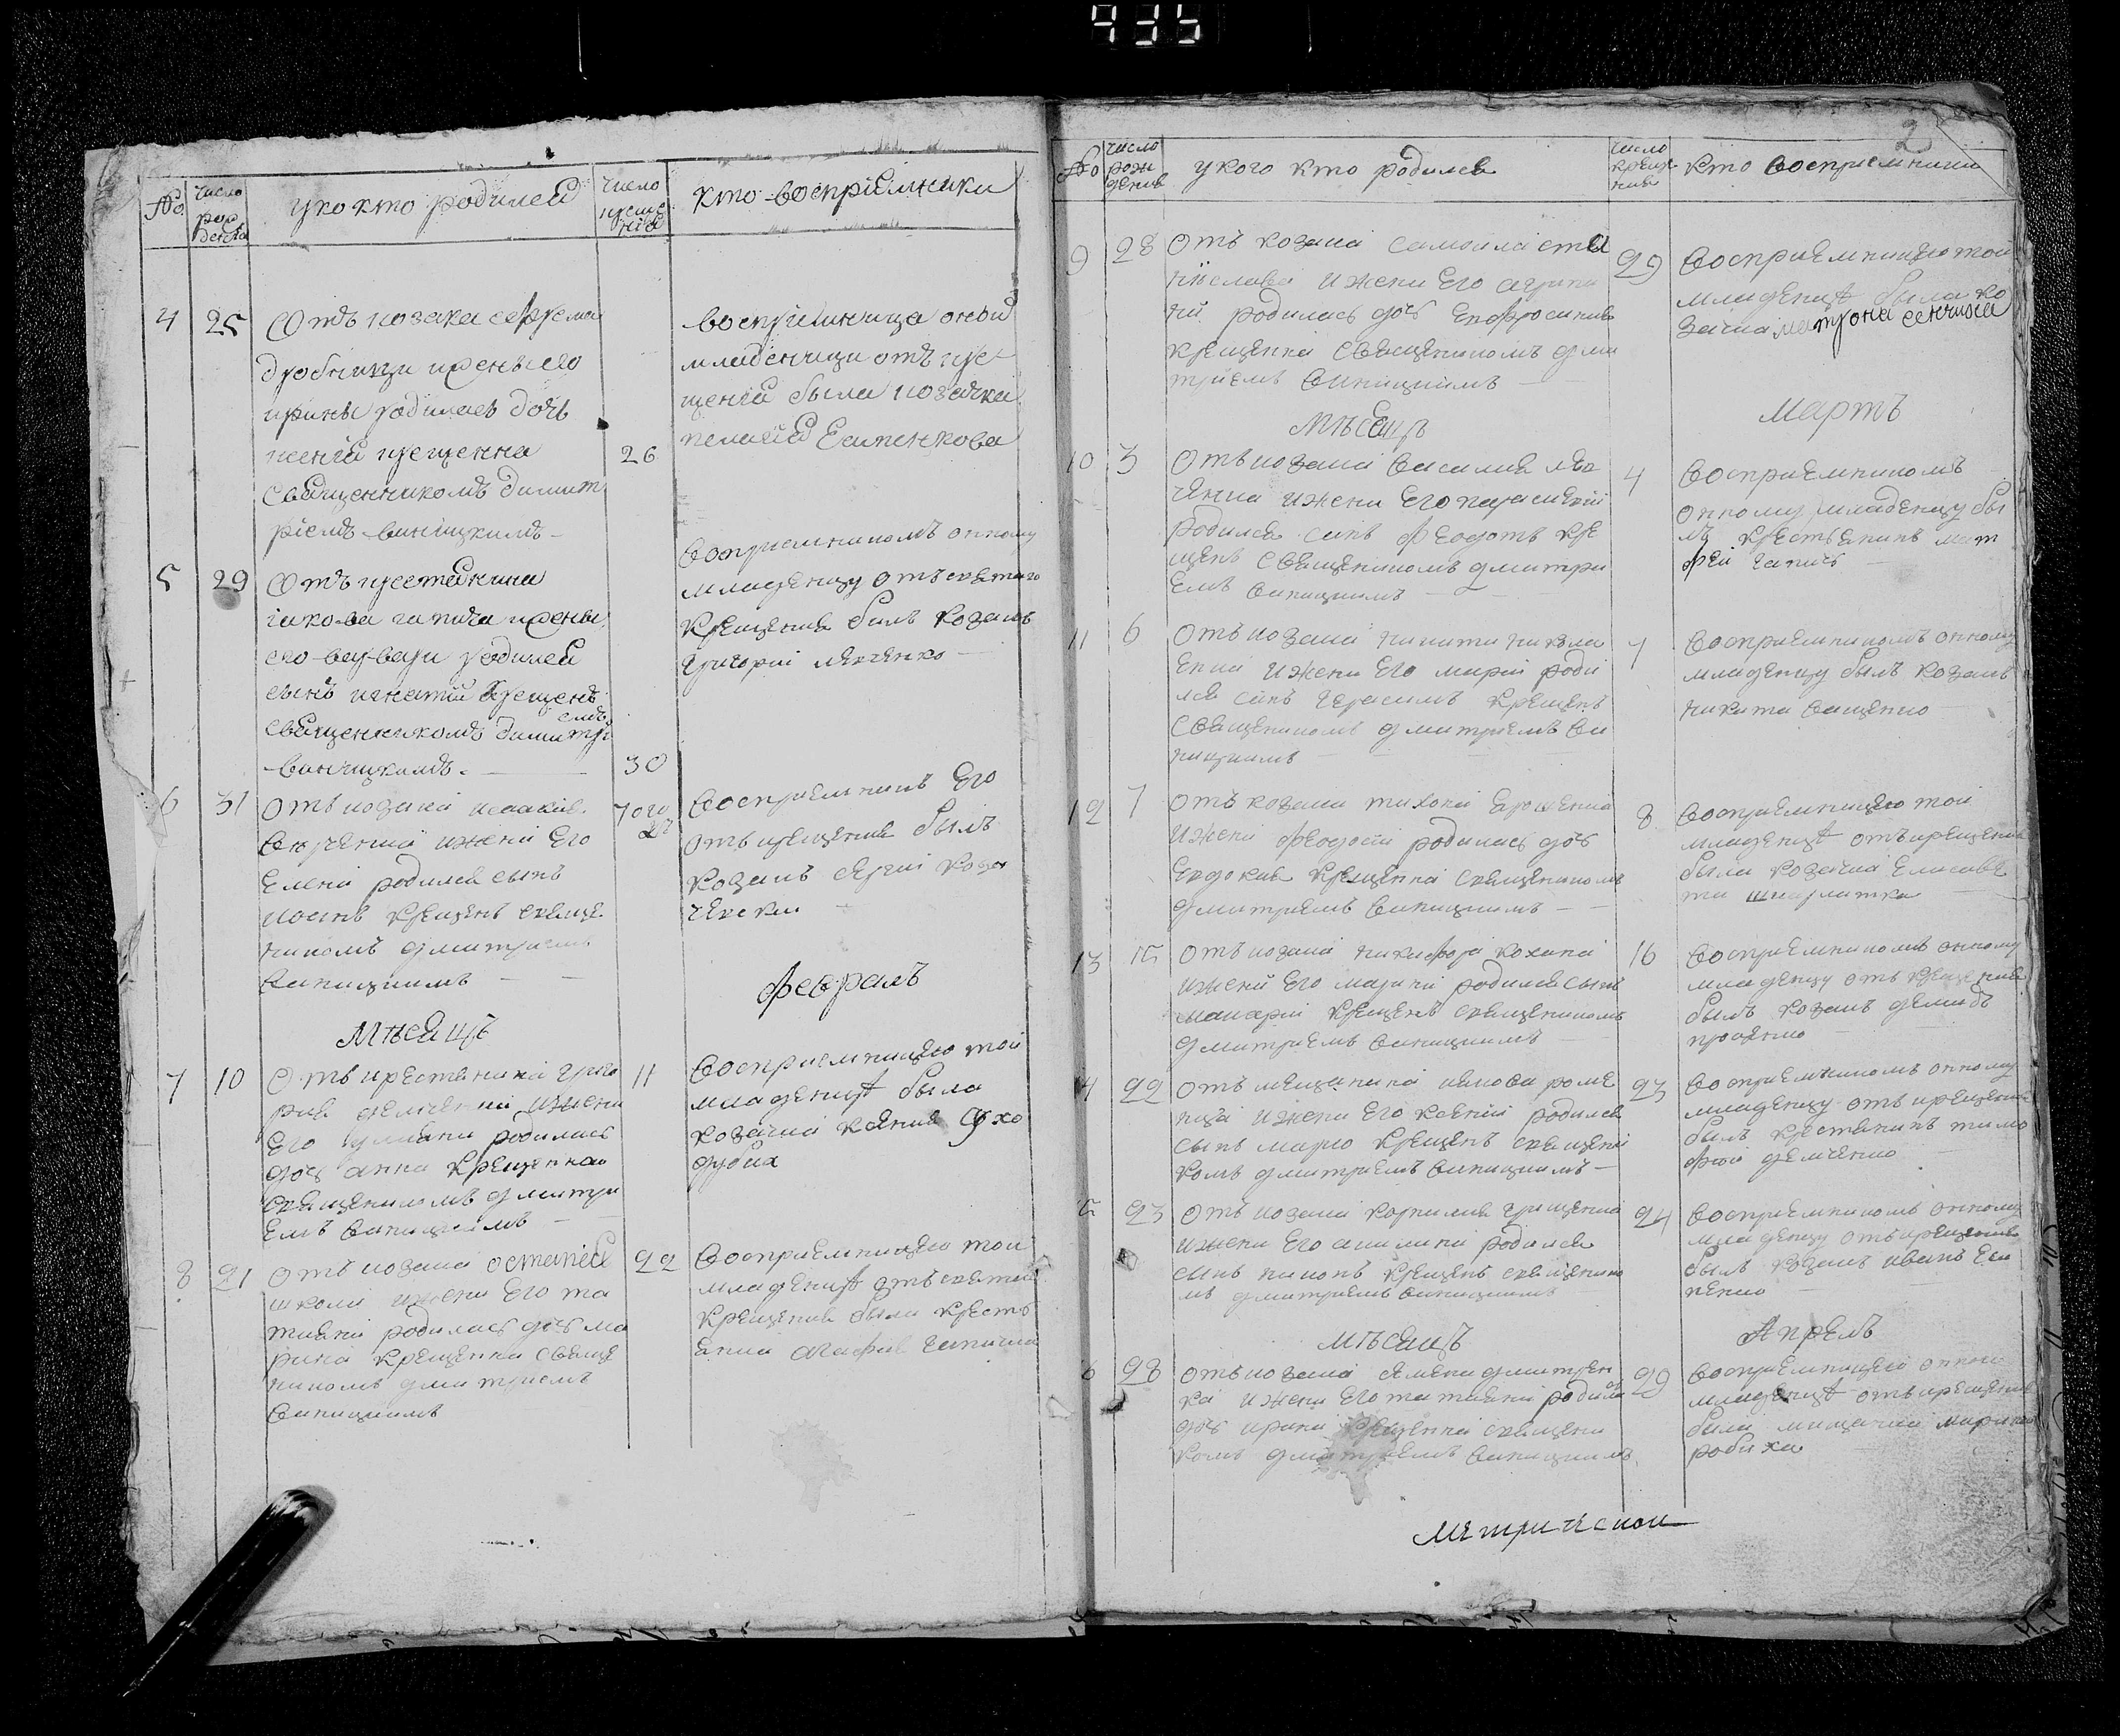 435
№
число
рож
дения
у ко кто родилсѧ
число
креще
нїѧ
кто восприемники
4
25
Отъ козака
дробницы и жены его
ирины родилась дочь
ксенїѧ крещенна
свѧщенникомъ димит
рїемъ виницкимъ
26
восприимница оной
младеницы отъ кре
щенїѧ была козачка
пелагїѧ Есипенкова
5
29
Отъ крестѧнина
ꙗкова гапича и жены
его варвари родилсѧ
сынъ игнатїй крещенъ
свѧщенникомъ димитрі
емъ
виницкимъ
30
восприемникомъ онному
младенцу отъ свѧтаго
крещения билъ козакъ
григорий
6
31
Отъ козака исаакия
и жени его
Елени родился сынъ
крещенъ свяще
никомъ дмитриемъ
виницкимъ
восприемникъ Его
отъ крещения былъ
козакъ сергии
Мѣсяцъ
февраль
7
10
Отъ крестянина григо
рия демченка и жени
Его улияни родилась
дочь анна крещенна
священикомъ дмитри
Емъ виницкимъ
11
восприемницею той
младеницѣ была
козачка ксения сухо
дубка
8
21
Отъ козака остапїѧ
школи и жени Его та
тияни родилась дочь ма
рина крещенна свяще
никомъ дмитриемъ
виницкимъ
22
восприемницею той
младеницѣ отъ святаго
крещения была кресть
янка агафия гапичка
2
№
число
рож
дения
у кого кто родился
число
креще
ния
кто восприемники
9
28
Отъ козака самоила ста
нїслава и жени Его агрипи
ни родилась дочь Енфросиния
крещенна священикомъ дми
триемъ виницкимъ
29
восприемницею той
младеницѣ была ко
зачка матрона сенчиха
Мѣсяцъ
Мартъ
10
3
Отъ козака василия лев
ченка и жени Его параскевии
родился синъ феодотъ кре
щенъ священикомъ дмитри
Емъ виницкимъ
4
восприемникомъ
онному младенцу бы
лъ крестьянинъ мат
фей гапичъ
11
6
Отъ козака никити никола
Енка и жени Его марии роди
лся синъ герасимъ крещенъ
священикомъ дмитриемъ ви
ницкимъ
7
восприемникомъ онному
младенцу былъ козакъ
никита ващенко
12
7
Отъ козака тихона Ерошенка
и жени феодосии родилась дочь
Евдокия крещенна священикомъ
дмитриемъ виницкимъ
8
восприемницею той
младеницѣ отъ крещения
была козачка Елисаве
та шкарлатка
13
15
Отъ козака никифора кохана
и жени Его марини родился сынъ
макарии крещенъ священикомъ
дмитриемъ виницкимъ
16
восприемникомъ онному
младенцу отъ крещения
былъ козакъ демидъ
14
22
Отъ мещанина иякова роме
нца и жени Его ксении родился
сынъ марко крещенъ священи
комъ дмитриемъ виницкимъ
23
восприемникомъ онному
младенцу отъ крещения
былъ крестянинъ тимо
фей демченко
5
23
Отъ козака корнилия грищенка
и жени Его акилини родился
сынъ никонъ крещенъ священико
мъ дмитриемъ виницкимъ
24
восприемникомъ онному
младенцу отъ крещения
былъ козакъ иванъ Еси
пенко
мѣсяцъ
Апрель
6
28
Отъ козака семена дмитрен
ка и жени Его татияни родила
сь
дочь ирина крещенна священи
комъ дмитриемъ виницкимъ
29
восприемницею онной
младеницѣ отъ крещения
била мещанка марина
робиха
метрическои